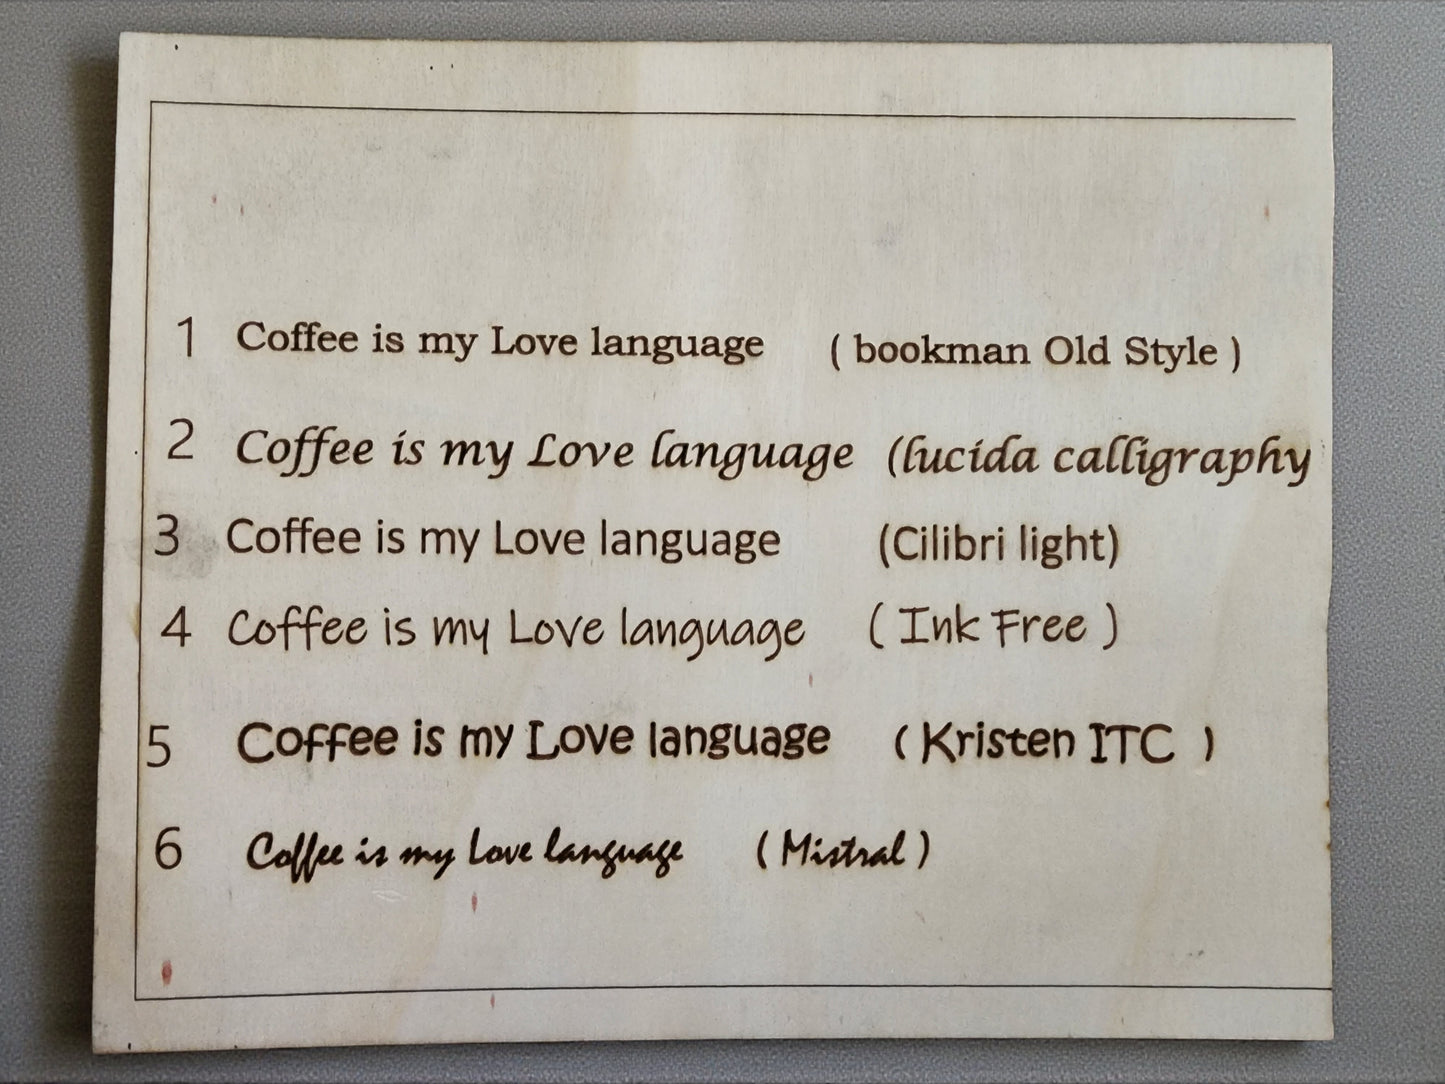 1 Coffee is my Love language ( bookman Old Style )
2 Coffee is my Love language (lucida calligraphy
3 Coffee is my Love language (Cilibri light)
4 Coffee is my Love language ( Ink Free )
5 Coffee is my Love language ( Kristen ITC )
6 Coffee is my Love language ( Mistral )